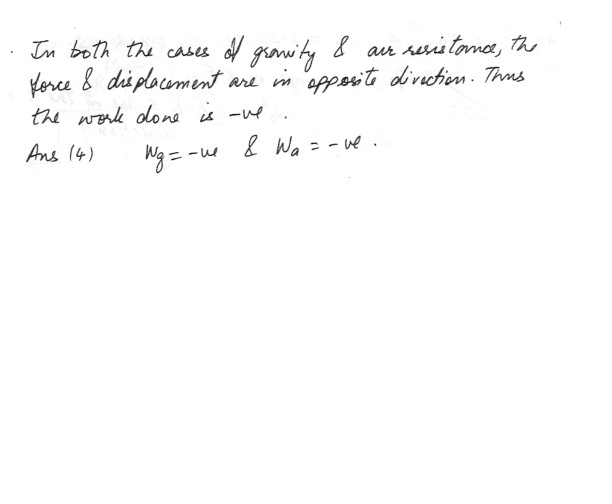 In both the cases of gravity & air resistance, the
force & displacement are in opposite direction. Thus
the work done is -ve .
Ans (4) Wg = -ve & Wa = -ve .